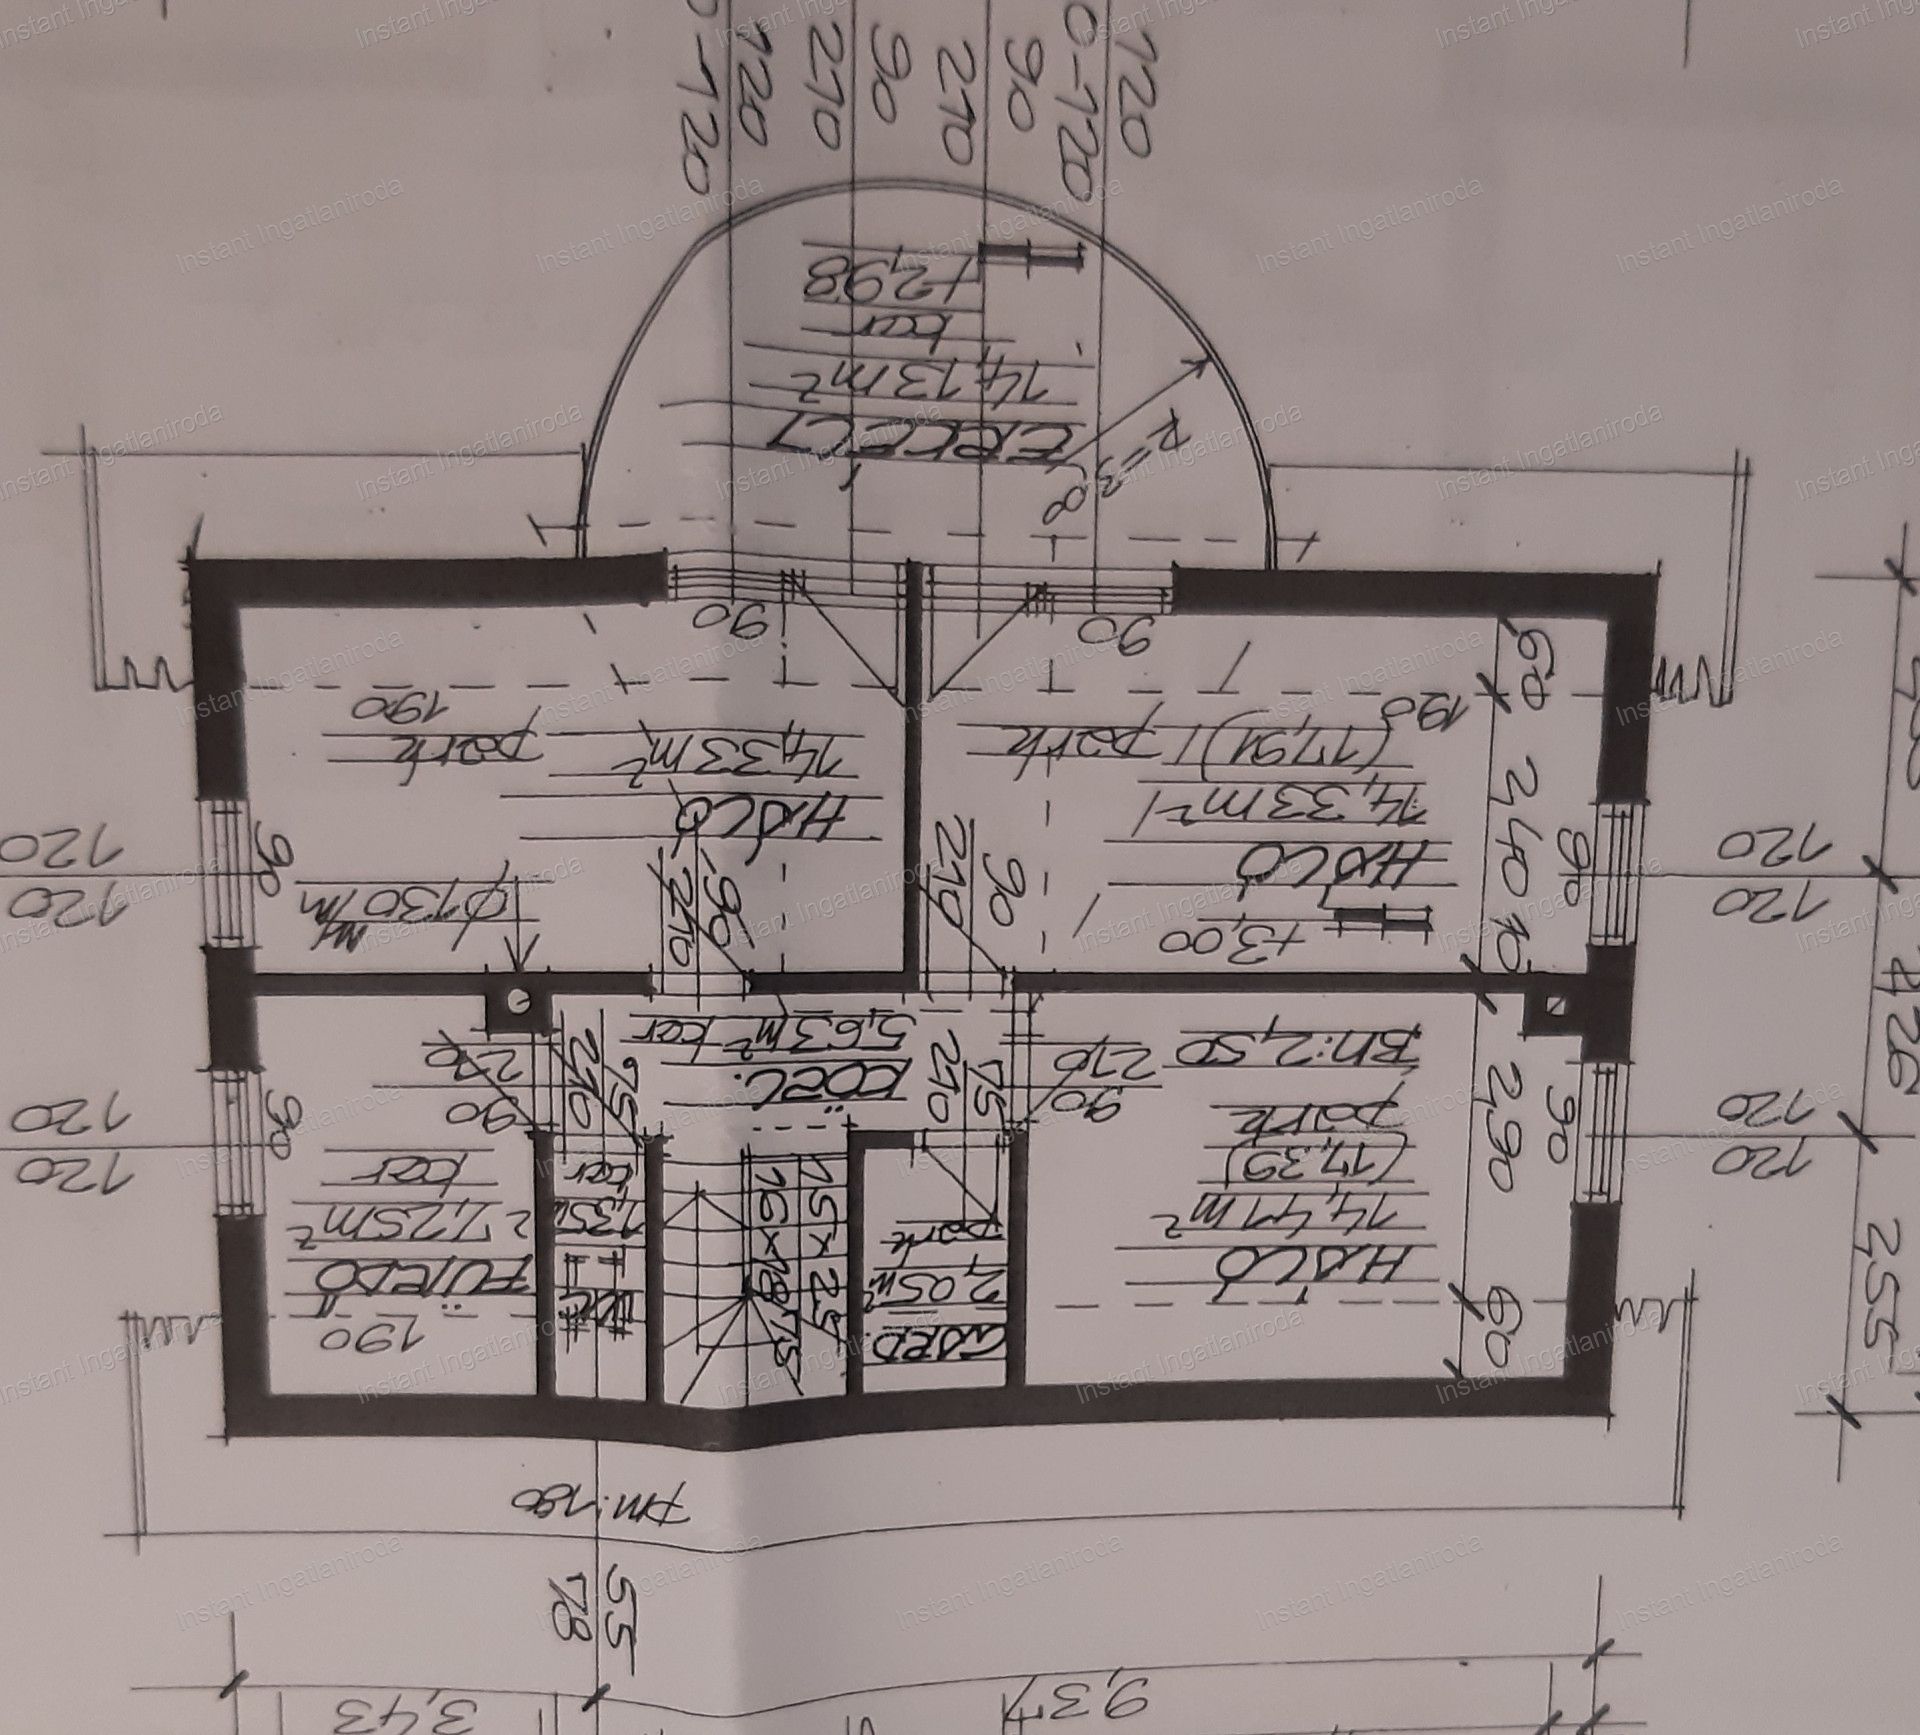 120
0-120
90
210
90
210
120
0-120
ERKÉLY
14,13 m²
ker
+2,98
R=3,0
90
90
HÁLÓ
14,33 m²
park
190
HÁLÓ
14,33 m²
(17,91)
park
190
+3,00
φ130
90
210
90
210
120
120
90
120
120
90
120
120
90
120
120
90
60
2,40
10
2,90
60
KÖZL.
5,63 m² ker
90
210
75
210
75
210
90
210
FÜRDŐ
7,25 m²
ker
190
1,35
ker
15×25
16×18,75
GARD.
2,05 m²
park
HÁLÓ
14,41 m²
(17,39)
park
BM: 2,50
4,26
2,55
pm: 180
55
78
3,43
9,37
Instant Ingatlaniroda